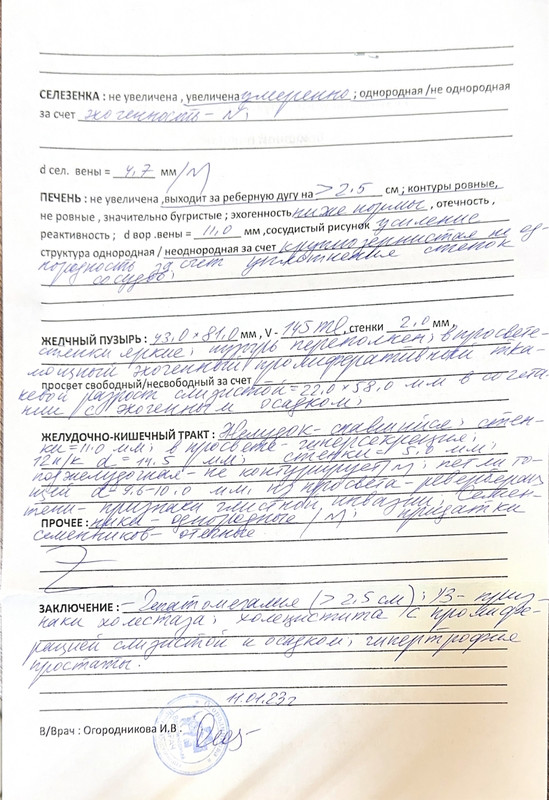 СЕЛЕЗЕНКА : не увеличена , увеличена умеренно ; однородная /не однородная
за счет эхогенность - N;
d сел. вены = 4,7 мм /N
ПЕЧЕНЬ : не увеличена ,выходит за реберную дугу на > 2.5 см ; контуры ровные,
не ровные , значительно бугристые ; эхогенность ниже нормы , отечность ,
реактивность ; d вор .вены = 11,0 мм ,сосудистый рисунок усиление
структура однородная / неоднородная за счет крупнозернистая не од-
нородность за счет уплотнения стенок
сосудов;
ЖЕЛЧНЫЙ ПУЗЫРЬ : 43,0 × 81,0 мм , V - 145 ml , стенки 2,0 мм ,
стенки яркие; пузырь переполнен; в просвете-
мощный эхогенный пролиферативный тка-
просвет свободный/несвободный за счет
кевой разрост слизистой = 22,0 × 58,0 мм в сочета-
нии с эхогенным осадком;
ЖЕЛУДОЧНО-КИШЕЧНЫЙ ТРАКТ : Желудок - спавшийся; стен-
ки = 11.0 мм; в просвете - гиперсекреция;
12п/к d = 14.5 мм; стенки = 5.8 мм;
поджелудочная - не контурирует/N; петли то-
щей d = 9.6-10.0 мм, из просвета - ревербера
тени - признаки глистной инвазии; Семен-
ПРОЧЕЕ : ники - однородные /N; придатки
семенников - отечные
ЗАКЛЮЧЕНИЕ : - Гепатомегалия (> 2,5 см); УЗ - приз-
наки холестаза; холецистита с пролифе-
рацией слизистой и осадком; гипертрофия
простаты.
11.01.23г
В/Врач : Огородникова И.В :